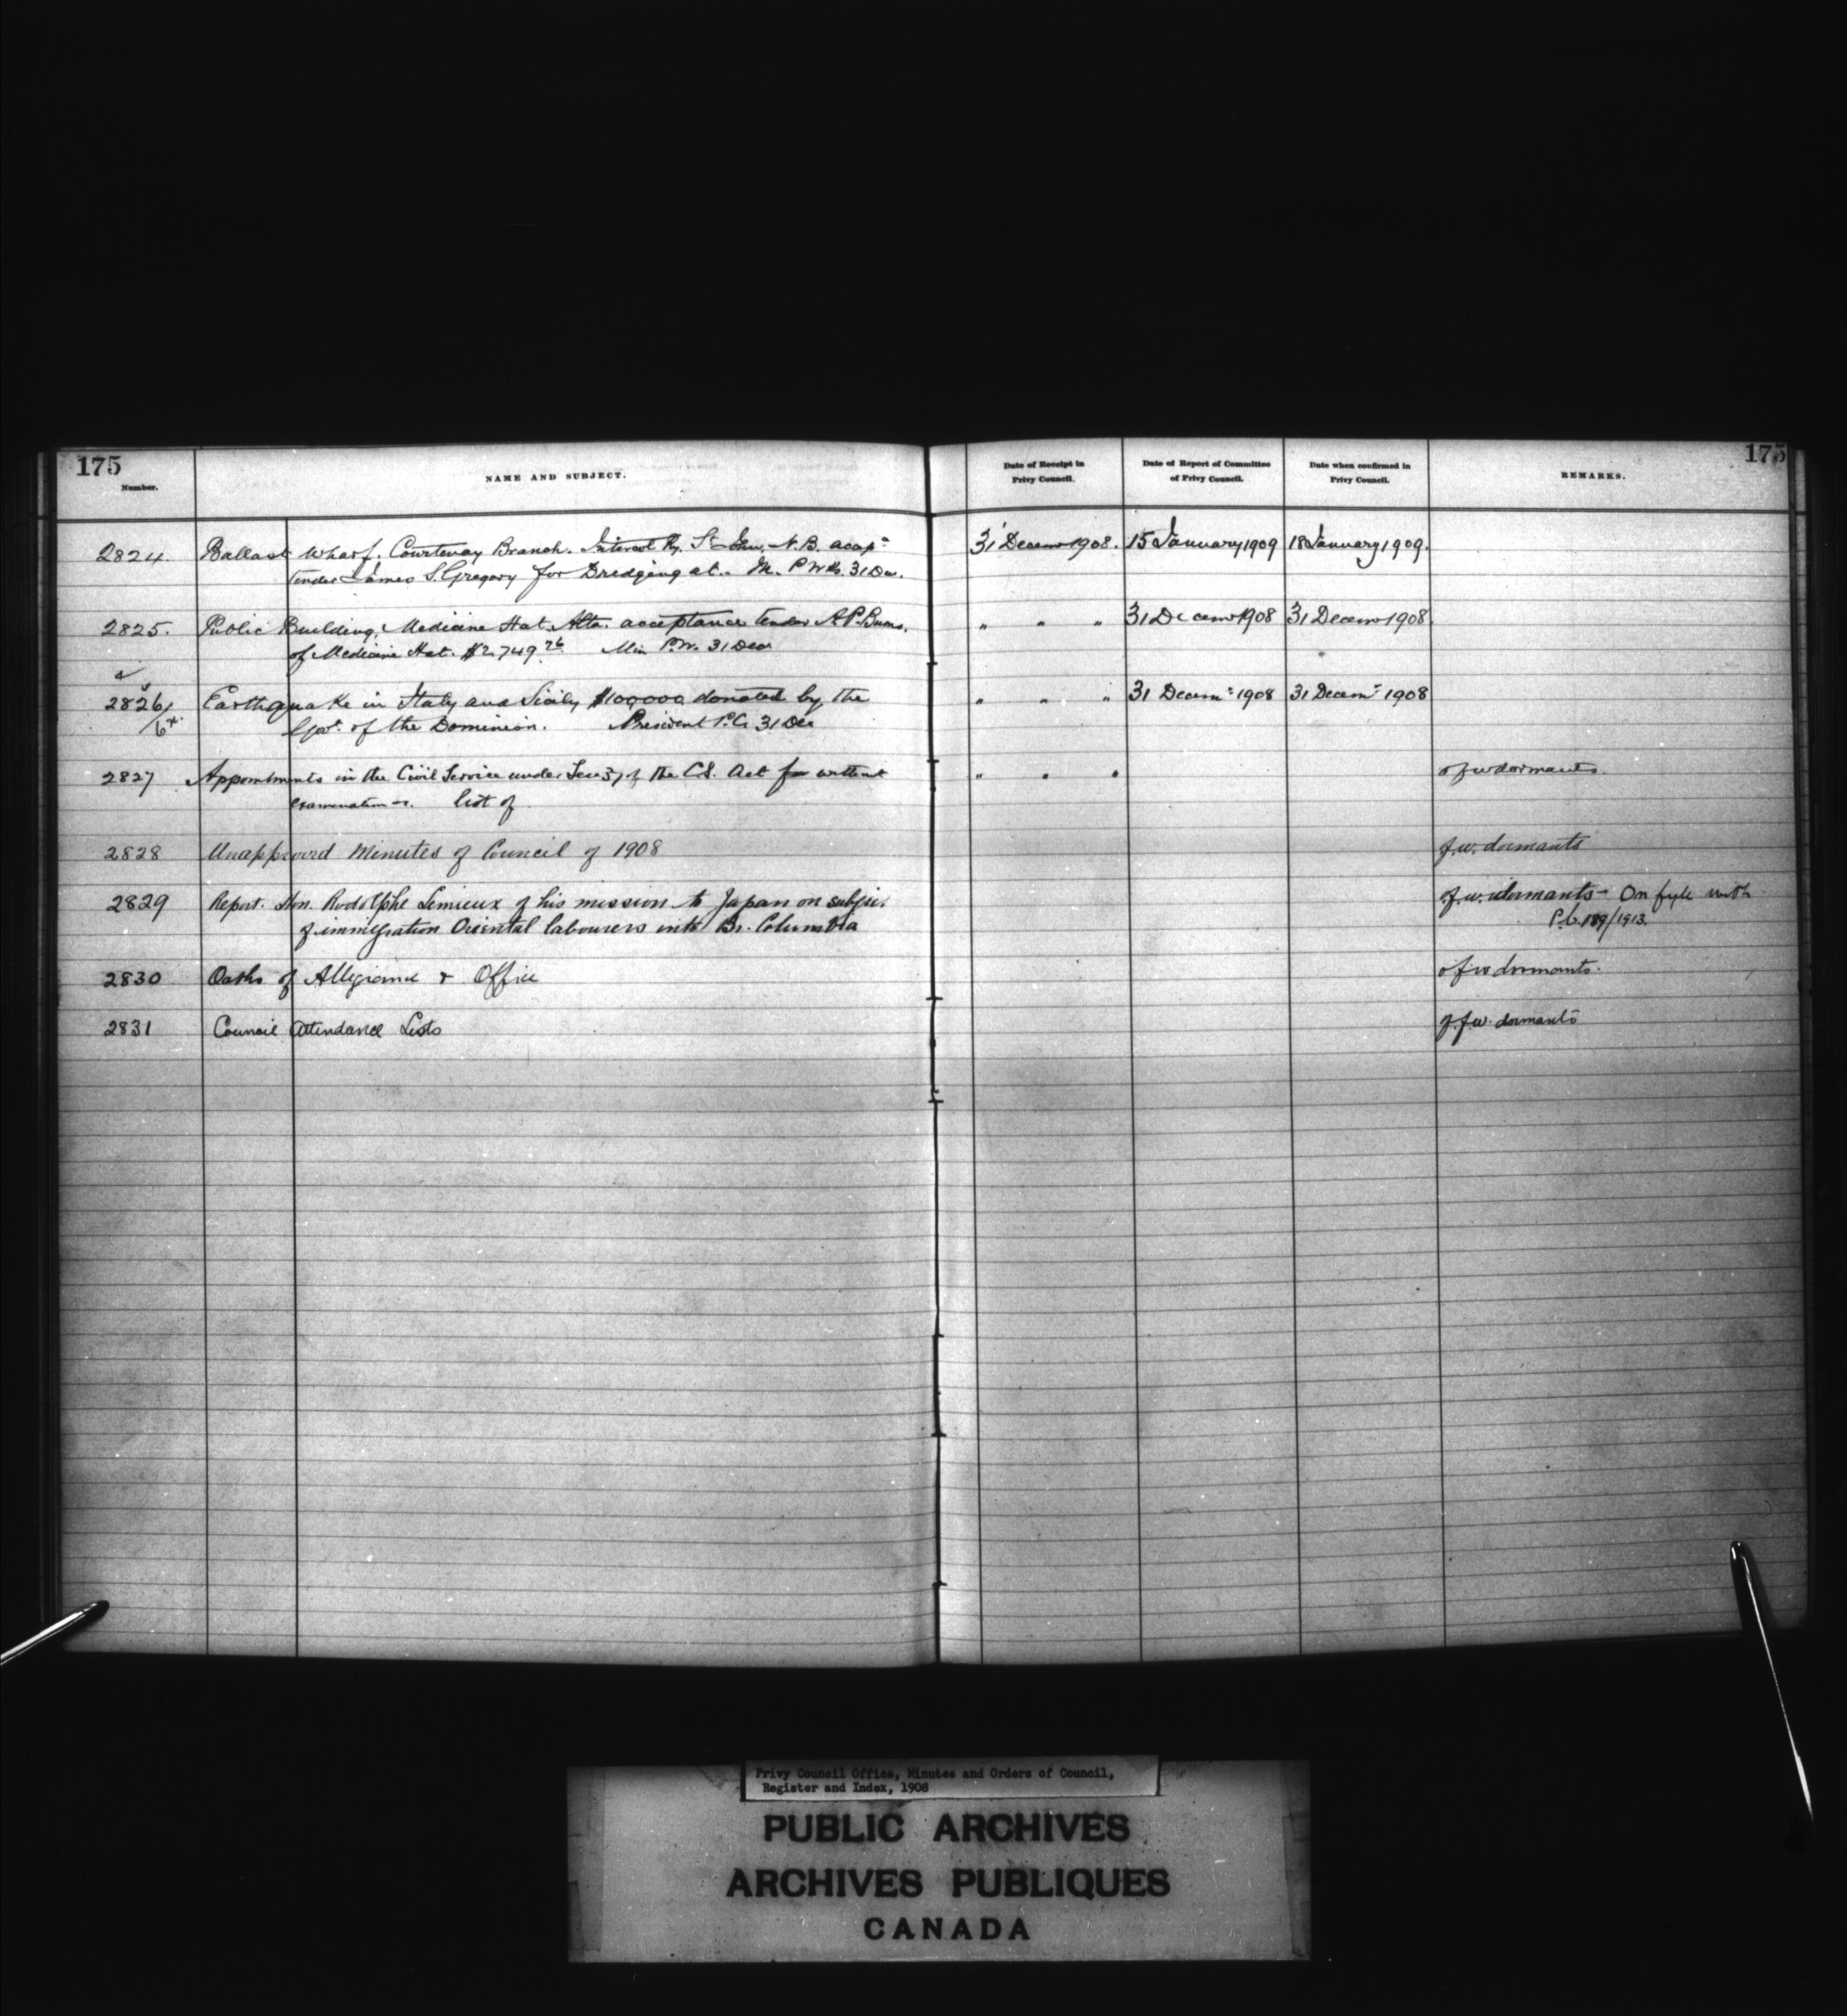 175
175
Number.
NAME AND SUBJECT.
Date of Receipt in
Privy Council.
Date of Report of Committee
of Privy Council.
Date when confirmed in
Privy Council.
REMARKS.
2824. Ballast Wharf. Courtenay Branch. Intercol Ry. St John, N.B. accep 31 Decem 1908. 15 January 1909 18 January 1909.
tender James S. Gregory for Dredging at. M. P. Wks. 31 Dec.
2825. Public Building, Medicine Hat, Alta. acceptance tender A.P. Burns, " " " 31 Decem 1908 31 Decem 1908
of Medicine Hat. $2,749.26 Min P.W. 31 Dec
2826 Earthquake in Italy and Sicily $100,000 donated by the " " " 31 Decem 1908 31 Decem 1908
Govt. of the Dominion. President P.C. 31 Dec
2827 Appointments in the Civil Service under Sec 37 of the C.S. Act without " " " f w dormants.
examination. list of
2828 Unapproved Minutes of Council of 1908 f.w. dormants
2829 Report. Hon. Rodolphe Lemieux of his mission to Japan on subject f.w. dormants - On fyle with
of immigration Oriental labourers into Br. Columbia P.C. 189/1913.
2830 Oaths of Allegiance & Office f w dormants.
2831 Council Attendance Lists f.w. dormants
Privy Council Office, Minutes and Orders of Council,
Register and Index, 1908
PUBLIC ARCHIVES
ARCHIVES PUBLIQUES
CANADA